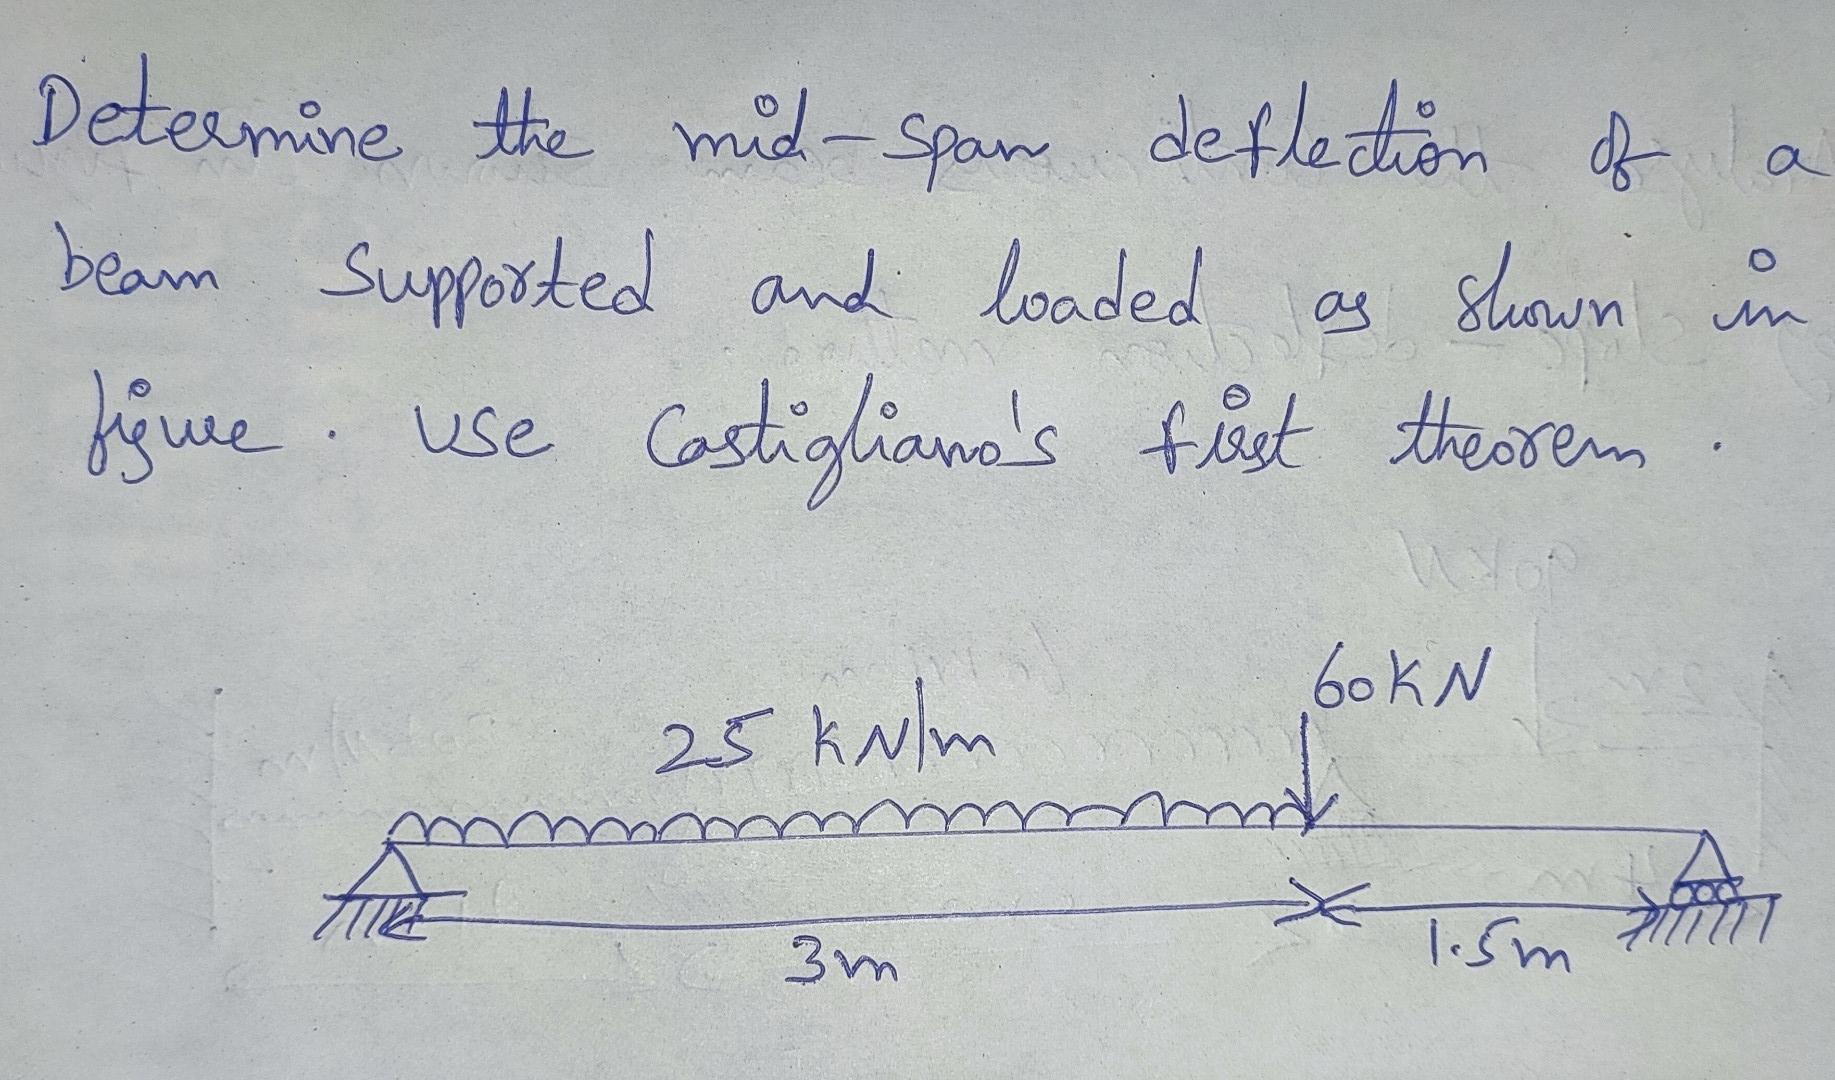 Determine the mid-span deflection of a
beam supported and loaded as shown in
figure. Use Castigliano's first theorem.
60KN
25 KN/m
3m
1.5m